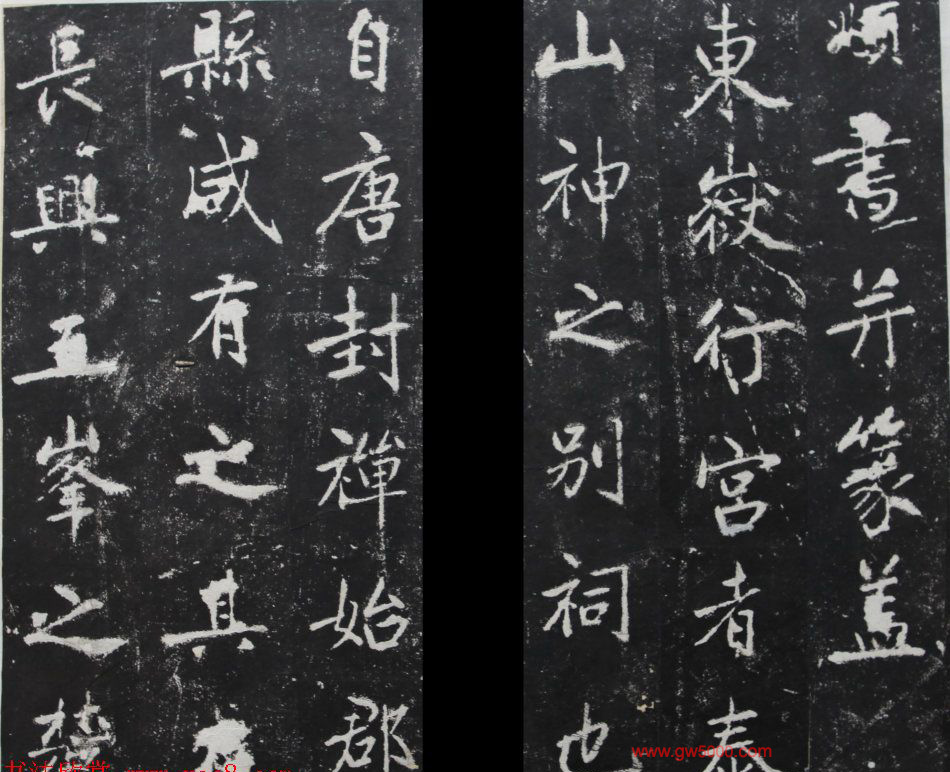 頫書并篆蓋
東嶽行宮者泰
山神之別祠也
自唐封禪始郡
縣咸有之其在
長興五峯之
www.gw5000.com